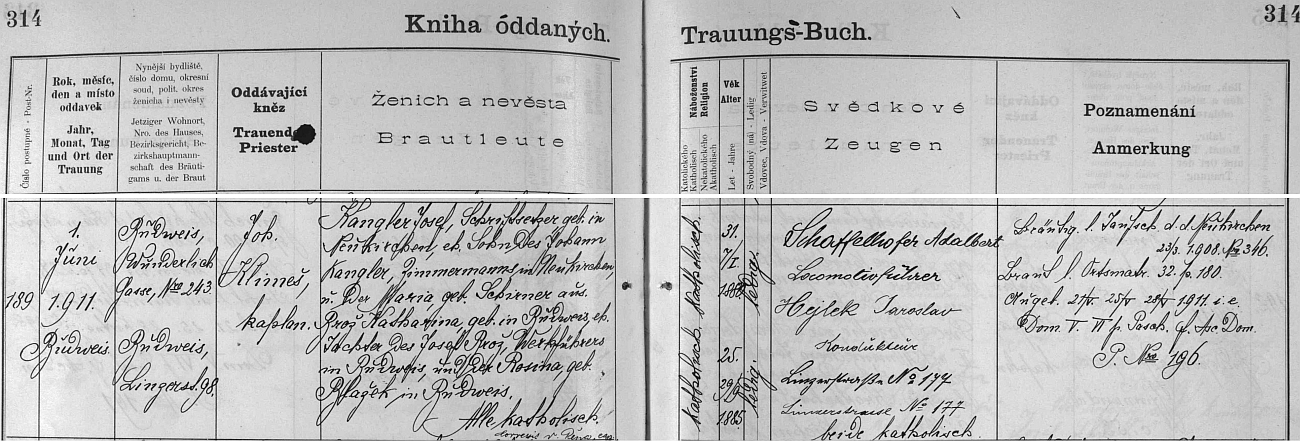 314
Kniha óddaných.
Číslo postupné - Post-Nr.
Rok, měsíc,
den a místo
oddavek
Jahr,
Monat, Tag
und Ort der
Trauung
Nynější bydliště,
číslo domu, okresní
soud, polit. okres
ženicha i nevěsty
Jetziger Wohnort,
Nro. des Hauses,
Bezirksgericht, Be-
zirkshauptmann-
schaft des Bräuti-
gams u. der Braut
Oddávající
kněz
Trauender
Priester
Ženich a nevěsta
Brautleute
189
1.
Juni
1911.
Budweis.
Budweis,
Wunderlich
Gasse, Nro 243
Budweis,
Lingerst. 98.
Joh.
Klimeš,
kaplan.
Kangler Josef, Schriftsetzer geb. in
Neukirchen, eh. Sohn des Johann
Kangler, Zimmermanns in Neukirchen,
u. der Maria geb. Schirner aus.
Brož Katharina, geb. in Budweis, eh.
Tochter des Josef Brož, Werkführers
in Budweis, und der Rosina, geb.
in Budweis.
Alle katholisch.
Trauungs-Buch.
314
Náboženství
Religion
Katolického
Katholisch
Nekatolického
Akatholisch
Věk
Alter
Let - Jahre
Svobodný (ná) - Ledig
Vdovec, Vdova - Verwitwet
Svědkové
Zeugen
Poznamenání
Anmerkung
katholisch
katholisch
31.
7/I.
1880
ledig.
25.
29/9
1885
ledig.
Schaffelhofer Adalbert
Locomotivführer
Hejlek Jaroslav
Kondukteur
Lingerstraße No 177
Linzerstrasse No 177
beide katholisch.
Bräutig. l. Taufsch. d. d. Neukirchen
23/3. 1908. Nro 346.
Braut l. Ortsmatr. 32. p. 180.
Auget. 21/V 25/V 28/V 1911. i. e.
Dom. V. VI p. Pasch. et Asc. Dom.
P. Nro 196.